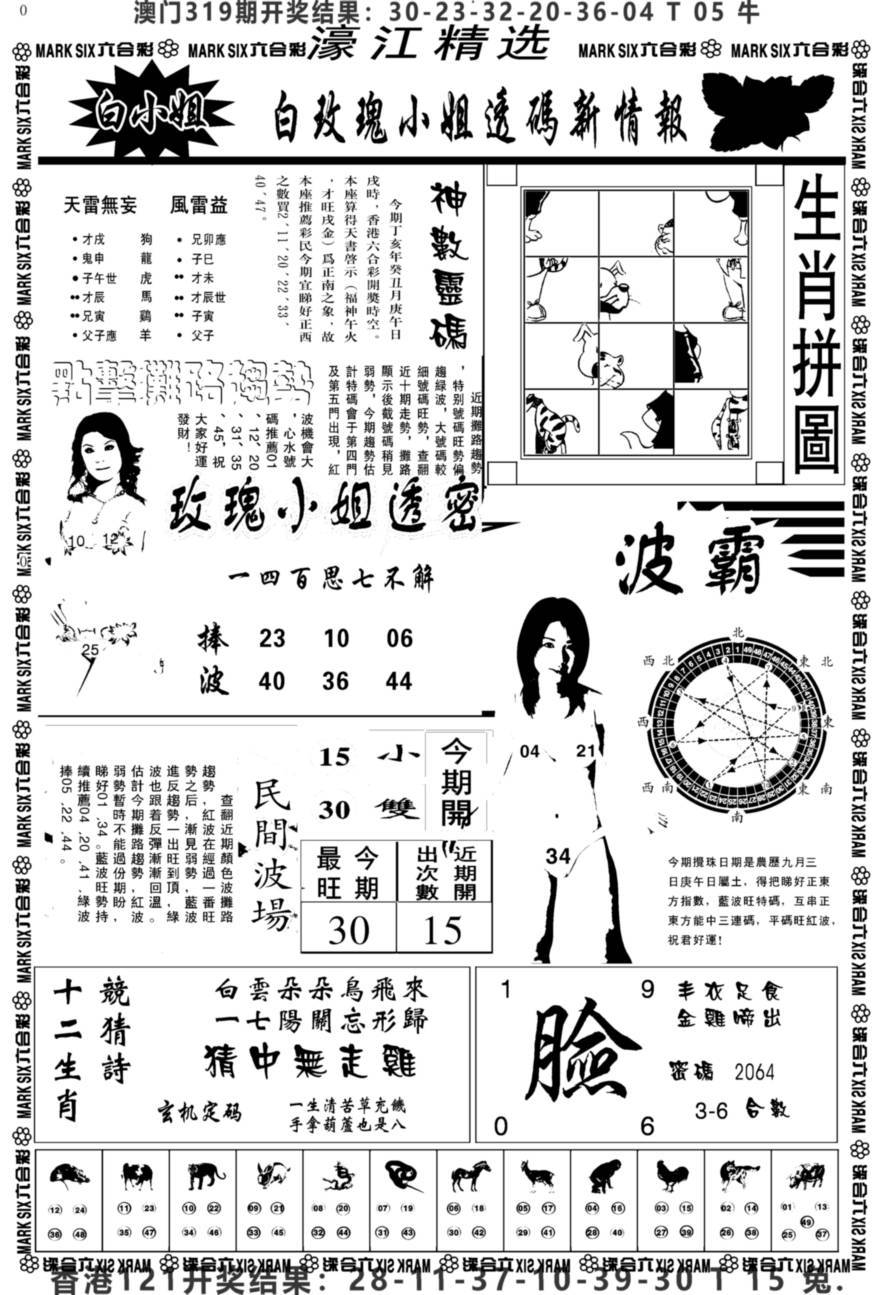 0
澳门319期开奖结果：30-23-32-20-36-04 T 05 牛
MARK SIX六合彩 MARK SIX六合彩 濠江精选 MARK SIX六合彩 MARK SIX六合彩
白小姐
白玫瑰小姐透碼新情報
天雷無妄 風雷益
•才戌 狗 •兄卯應
•鬼申 龍 •子巳
•子午世 虎 ••才未
••才辰 馬 ••才辰世
••兄寅 鷄 ••子寅
•父子應 羊 •父子
神數靈碼
今期丁亥年癸丑月庚午日
戌時，香港六合彩開獎時空。
本座算得天書啓示（福神午火
，才旺戌金）爲正南之象，故
本座推薦彩民今期宜睇好正西
之數買2′11′20′22′33′
40′47。
生肖拼圖
點擊攤路趨勢
近期攤路趨勢
，特别號碼旺勢偏
趨緑波，大號碼較
細號碼旺勢，查翻
近十期走勢，攤路
顯示後截號碼稍見
弱勢，今期趨勢估
計特碼會于第四門
及第五門出現，紅
波機會大
，心水號
碼推薦01
、12、20
、31、35
、45，祝
大家好運
發財！
10 12
25
玫瑰小姐透密
一四百思七不解
捧 23 10 06
波 40 36 44
波霸
04 21
34
北
東北
東
東南
南
西南
西
西北
今期攪珠日期是農歷九月三
日庚午日屬土，得把睇好正東
方指數，藍波旺特碼，互串正
東方能中三連碼，平碼旺紅波，
祝君好運！
民間波場
查翻近期顏色波攤路
趨勢，紅波在經過一番旺
勢之后，漸見弱勢，藍波
進反趨勢一出旺到頂，緑
波也跟着反彈漸漸回溫。
估計今期攤路趨勢，紅波
弱勢暫時不能過份期盼，
睇好01.34。藍波旺勢持
續推薦04.20.41.緑波
捧05.22.44。
15 小
30 雙
今期開
今期最旺 近期開出次數
30 15
十二生肖
競猜詩
白雲朵朵鳥飛來
一七陽關忘形歸
猜中無走雞
玄机定码
一生清苦草充饑
手拿葫蘆也是八
1 9
臉
0 6
丰衣足食
金雞啼出
密碼 2064
3-6 合數
12 24 11 23 10 22 09 21 08 20 07 19 06 18 05 17 04 16 03 15 02 14 01 13
36 48 35 47 34 46 33 45 32 44 31 43 30 42 29 41 28 40 27 39 26 38 25 49 37
香港121开奖结果：28-11-37-10-39-30 T 15 兔.